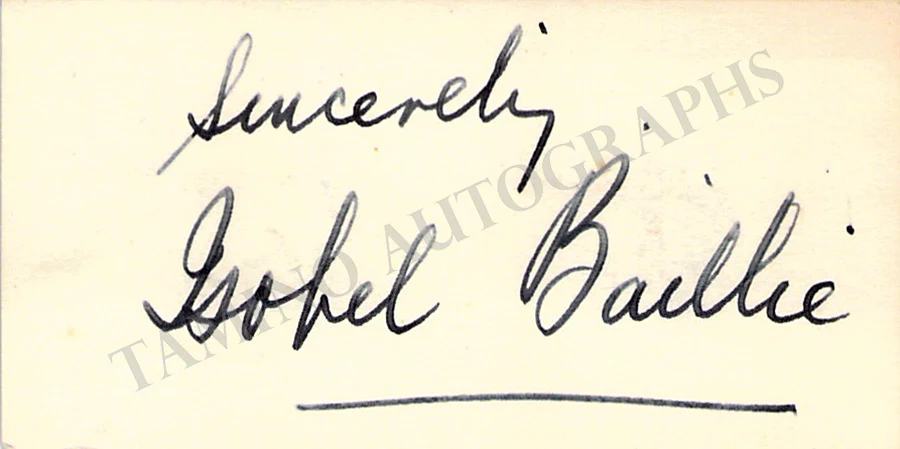 Sincerely
Isobel Baillie
TAMINO AUTOGRAPHS